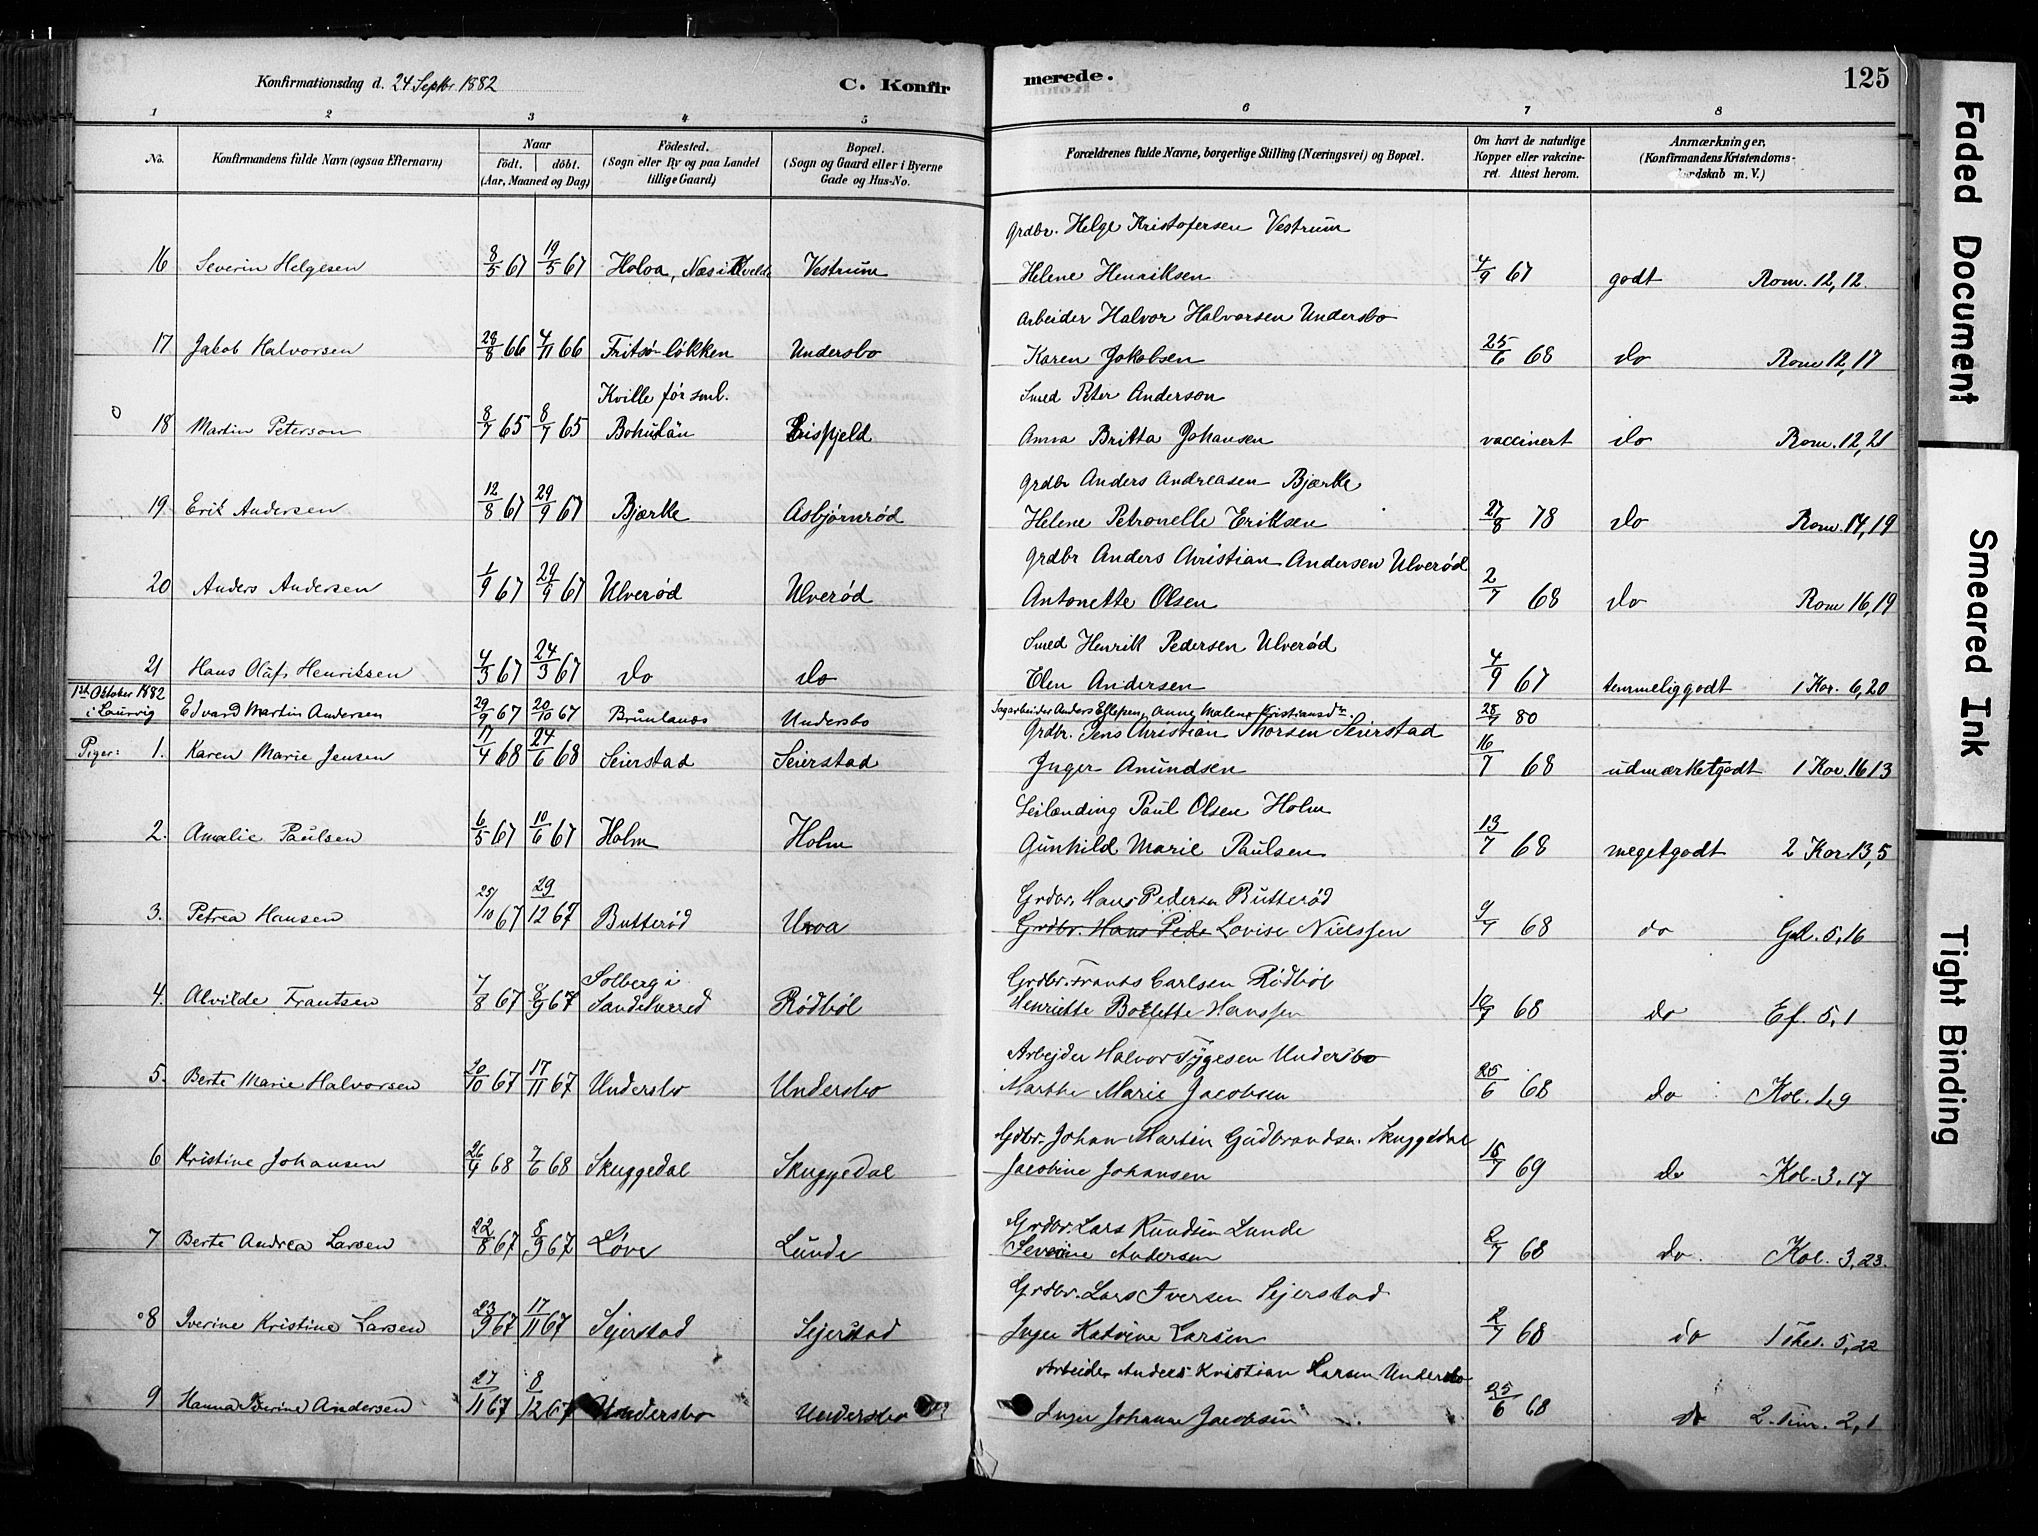 Konfirmationsdag d. 24 Septbr 1882
C. Konfirmerede.
125
1 2 3 4 5 6 7 8
No. Konfirmandens fulde Navn (ogsaa Efternavn) Naar født. døbt. (Aar, Maaned og Dag) Födested. (Sogn eller By og paa Landet tillige Gaard) Bopæl. (Sogn og Gaard eller i Byerne Gade og Hus-No. Forældrenes fulde Navne, borgerlige Stilling (Næringsvei) og Bopæl. Om havt de naturlige Kopper eller vakcineret. Attest herom. Anmærkninger, (Konfirmandens Kristendomskundskab m. V.)
Grdbr. Helge Kristofersen Vestrum
16 Severin Helgesen 8/5 67 19/5 67 Holoa, Næs i Kveld Vestrum Helene Henriksen 4/9 67 godt Rom. 12,12.
Arbeider Halvor Halvorsen Undersbo
17 Jakob Halvorsen 28/8 66 4/11 66 Fritsöeløkken Undersbo Karen Jakobsen 25/6 68 do Rom 12,17
Kville førsml. Smed Peter Anderson
18 Martin Peterson 8/7 65 8/7 65 Bohuslän Prisfjeld Anna Britta Johansen vaccinert do Rom. 12,21
Grdbr Anders Andreasen Bjærke
19 Erik Andersen 12/8 67 29/9 67 Bjærke Asbjørnrød Helene Petronelle Eriksen 27/8 78 do Rom. 14,19
Grdbr Anders Christian Andersen Ulverød
20 Anders Andersen 1/9 67 29/9 67 Ulverød Ulverød Antonette Olsen 2/7 68 do Rom 16,19
Smed Henrik Pedersen Ulverød
21 Hans Olaf Henriksen 4/3 67 24/3 67 do do Elen Andersen 4/9 67 temmeliggodt 1 Kor. 6,20
1ste Oktober 1882 i Laurvig Edvard Martin Andersen 29/9 67 20/10 67 Brunlanæs Undersbo Sagarbeider Anders Ellefsen, Anne Malene Kristiansdtr. 28/7 80
Grdbr. Jens Christian Thorsen Seierstad
Piger: 1. Karen Marie Jensen 17/4 68 24/6 68 Seierstad Seierstad Inger Amundsen 16/7 68 udmærketgodt 1 Kor. 16 13
Leilænding Paul Olsen Holm
2. Amalie Paulsen 6/5 67 10/6 67 Holm Holm Gunhild Marie Paulsen 13/7 68 megetgodt 2 Kor 13,5
Grdbr. Hans Pedersen Butterød
3. Petrea Hansen 25/10 67 29/12 67 Butterød Unoa Grdbr. Hans Pede Lovise Nielssen 9/7 68 do Gal. 5,16
Solberg i Grdbr. Frants Carlsen Rødbøl
4. Alvilde Frantsen 7/8 67 8/9 67 Sandehverred Rødbøl Henriette Bolette Hanssen 10/7 68 do Ef. 5,1
Arbejder Halvor Tygesen Undersbo
5. Berte Marie Halvorsen 20/10 67 17/11 67 Undersbo Undersbo Marthe Marie Jacobsen 25/6 68 do Kol. 1,9
Gdbr. Johan Martin Gudbrandsn. Skuggedal
6 Kristine Johansen 26/4 68 7/6 68 Skuggedal Skuggedal Jacobine Johansen 15/7 69 do Kol. 3,17
Grdbr. Lars Knudsen Lunde
7 Berte Andrea Larsen 22/8 67 8/9 67 Løve Lunde Severine Andersen 2/7 68 do. Kol. 3,23.
Grdbr. Lars Iversen Sejerstad
8 Iverine Kristine Larsen 23/9 67 17/11 67 Sejerstad Sejerstad Inger Katrine Larsen 2/7 68 do 1 Thes. 5,22
Arbeider Anders Kristian Larsen Undersbo
9 Hanna Iverine Andersen 27/11 67 8/12 67 Undersbo Undersbo Inger Johanne Jacobsen 25/6 68 do 2. Tim. 2,1
Faded Document
Smeared Ink
Tight Binding